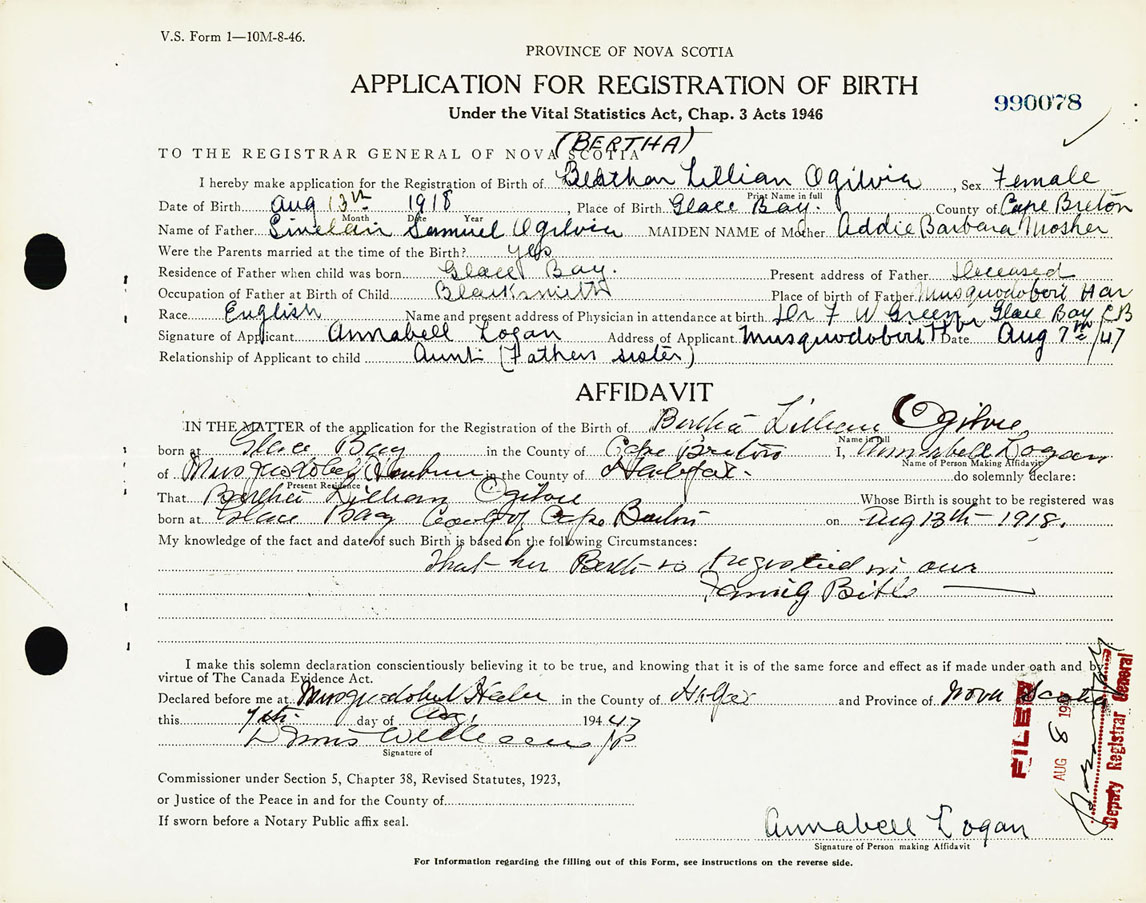 V.S. Form 1—10M-8-46.
PROVINCE OF NOVA SCOTIA
APPLICATION FOR REGISTRATION OF BIRTH
990078
Under the Vital Statistics Act, Chap. 3 Acts 1946
(BERTHA)
TO THE REGISTRAR GENERAL OF NOVA SCOTIA
I hereby make application for the Registration of Birth of Lillian Ogilvie, Sex Female
Print Name in full
Date of Birth Aug 13th 1918, Place of Birth Glace Bay. County of Cape Breton
Month Date Year
Name of Father Sinclair Samuel Ogilvie MAIDEN NAME of Mother Addie Barbara Mosher
Were the Parents married at the time of the Birth? yes
Residence of Father when child was born Glace Bay. Present address of Father Deceased
Occupation of Father at Birth of Child Blacksmith Place of birth of Father Musquodoboit Har
Race English Name and present address of Physician in attendance at birth Dr F W Green Glace Bay CB
Signature of Applicant Annabell Logan Address of Applicant Musquodoboit Hbr Date Aug 7th/47
Relationship of Applicant to child Aunt (Fathers sister)
AFFIDAVIT
IN THE MATTER of the application for the Registration of the Birth of Bertha Lillian Ogilvie
Name in full
born at Glace Bay in the County of Cape Breton I, Annabell Logan
Name of Person Making Affidavit
of Musquodoboit Harbour in the County of Halifax. do solemnly declare:
Present Residence
That Bertha Lillian Ogilvie Whose Birth is sought to be registered was
born at Glace Bay County of Cape Breton on Aug 13th - 1918.
My knowledge of the fact and date of such Birth is based on the following Circumstances:
That her Birth is in our
Family Bible
I make this solemn declaration conscientiously believing it to be true, and knowing that it is of the same force and effect as if made under oath and by
virtue of The Canada Evidence Act.
Declared before me at Musquodoboit in the County of Halifax and Province of Nova Scotia
this 7th day of Aug, 194 47
Dennis Williams JP
Signature of
FILED
AUG 8
Deputy Registrar General
Commissioner under Section 5, Chapter 38, Revised Statutes, 1923,
or Justice of the Peace in and for the County of
If sworn before a Notary Public affix seal.
Annabell Logan
Signature of Person making Affidavit
For Information regarding the filling out of this Form, see instructions on the reverse side.